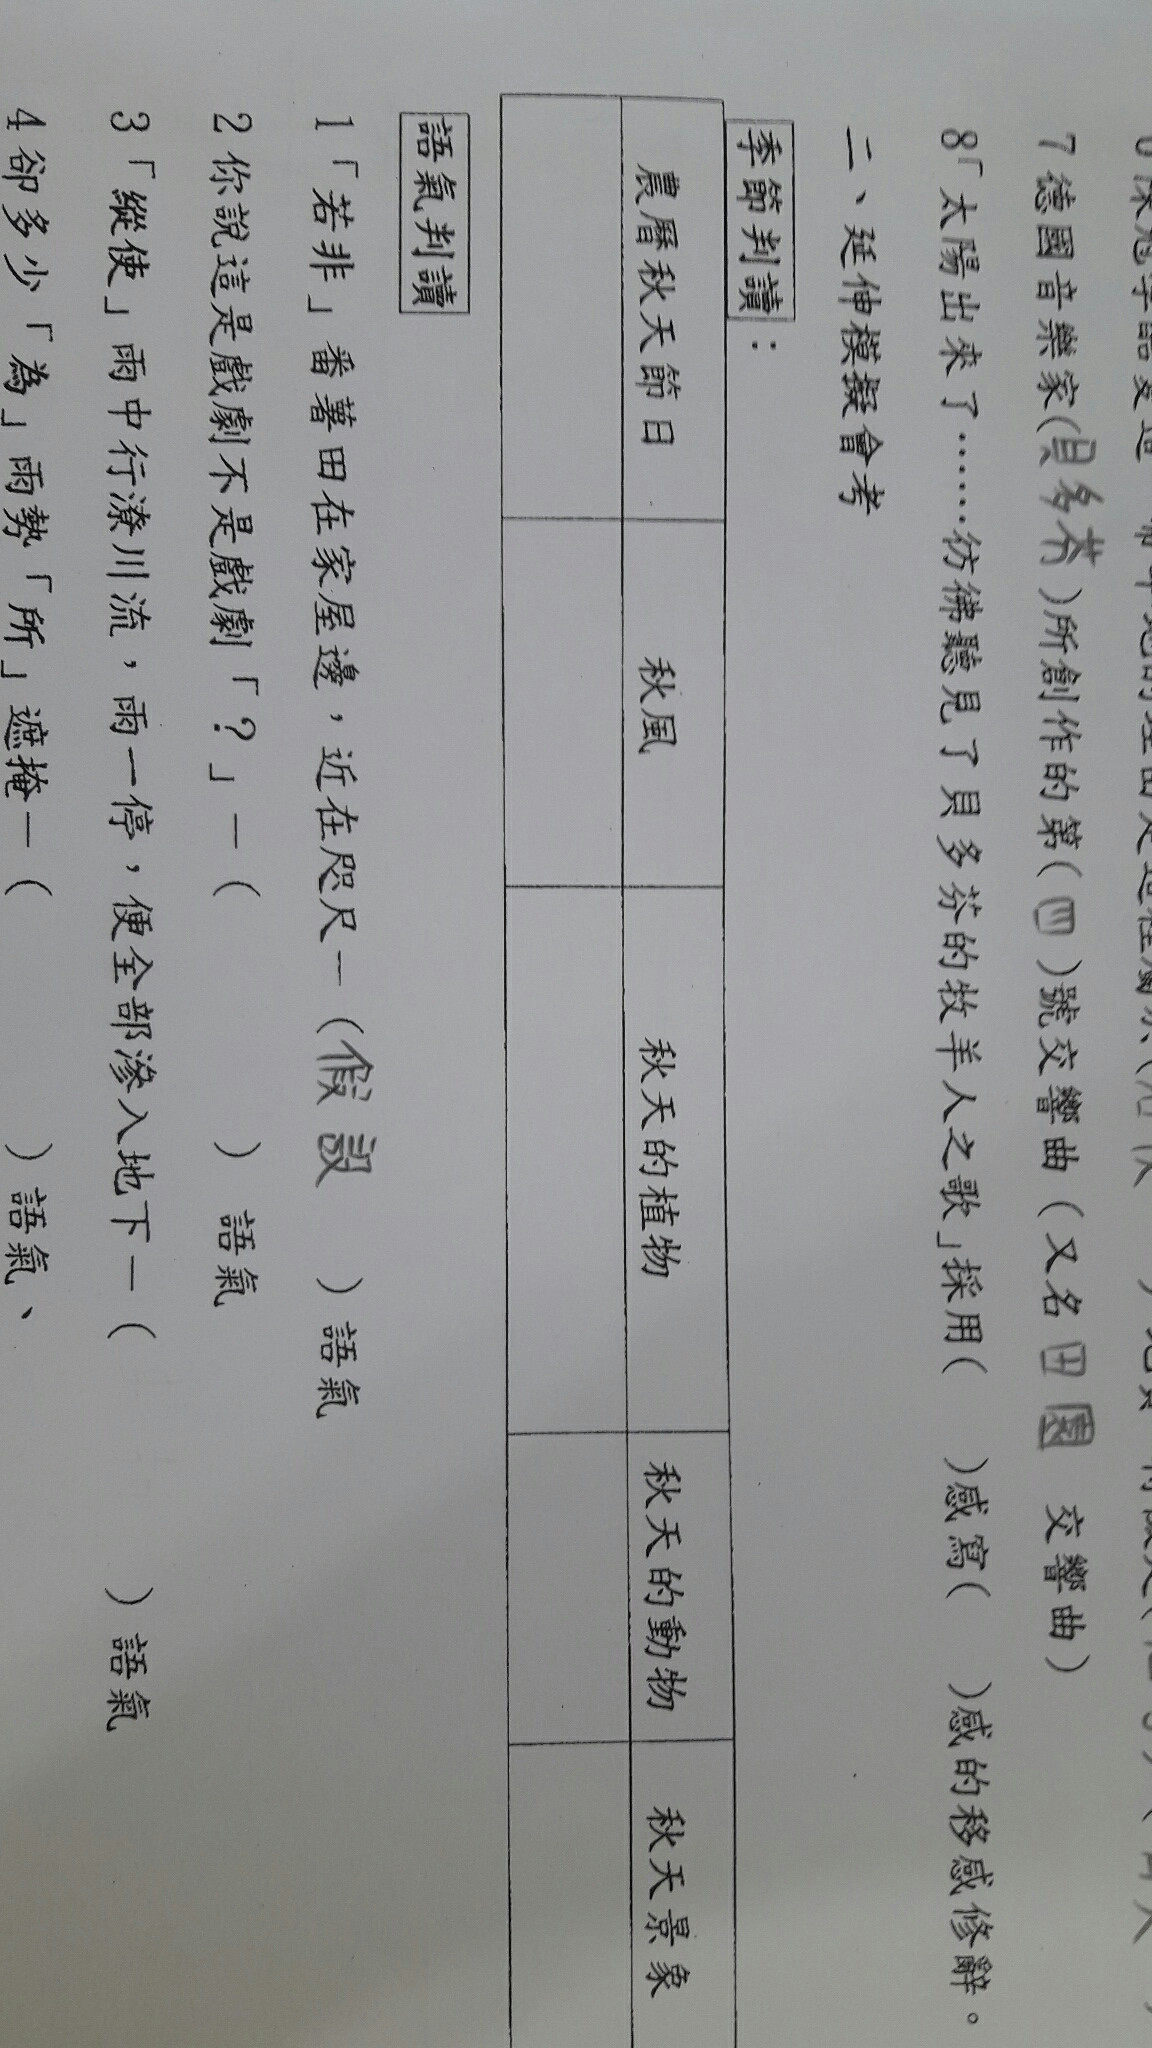 7德國音樂家(貝多芬)所創作的第(四)號交響曲(又名田園 交響曲)
8「太陽出來了……彷彿聽見了貝多芬的牧羊人之歌」採用( )感寫( )感的移感修辭。
二、延伸模擬會考
季節判讀：
農曆秋天節日 秋風 秋天的植物 秋天的動物 秋天景象
語氣判讀
1「若非」番薯田在家屋邊，近在咫尺—(假設 )語氣
2你說這是戲劇不是戲劇「?」—( )語氣
3「縱使」雨中行潦川流，雨一停，便全部滲入地下—( )語氣
4卻多少「為」雨勢「所」遮掩—( )語氣、